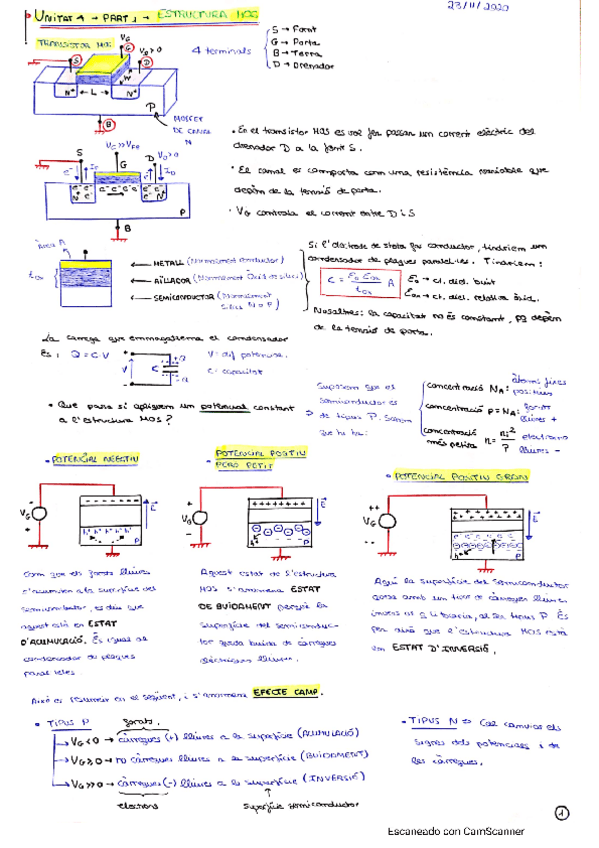 23/11/2020
UNITAT 4 → PART 1 → ESTRUCTURA MOS
TRANSISTOR MOS
4 terminals
S → Font
G → Porta
B → Terra
D → Drenador
VG
G
S
D
VD>0
W
L
N+
N+
P
B
MOSFET DE CANAL N
VG >> VFB
S
G
D
VD>0
ID
e-
N+
N+
P
B
• En el transistor MOS es vol fer passar un corrent elèctric del
drenador D a la font S.
• El canal es comporta com una resistència variable que
depèn de la tensió de porta.
• VG controla el corrent entre D i S
Àrea A
tox
METALL (Normalment conductor)
AÏLLADOR (Normalment Òxid de silici)
SEMICONDUCTOR (Normalment silici N o P)
conductor, tindríem un
condensador de plaques paral·leles. Tindríem:
C = E0 Eox / tox A
E0 → ct. diel. buit
Eox → ct. diel. relativa òxid.
Nosaltres: la capacitat no és constant, pq depèn
de la tensió de porta.
La càrrega que emmagatzema el condensador
és: Q = C·V
V
C
+Q
-Q
V: dif potencial.
C: capacitat
• Que passa si apliquem un potencial constant
a l'estructura MOS?
Suposem que el
semiconductor és
de tipus P. Sabem
que hi ha:
concentració NA: àtoms fixes
concentració p = NA: forats lliures +
concentració més petita n = ni²/p electrons lliures -
• POTENCIAL NEGATIU
• POTENCIAL POSITIU
PERÒ PETIT
• POTENCIAL POSITIU GRAN
VG
E
P
VG
E
P
VG
E
P
Com que els forats lliures
s'acumulen a la superfície del
semiconductor, es diu que
aquest està en ESTAT
D'ACUMULACIÓ. És igual al
condensador de plaques
paral·leles.
Aquest estat de l'estructura
MOS s'anomena ESTAT
DE BUIDAMENT perquè la
superfície del semiconduc-
tor queda buida de càrregues
elèctriques lliures.
Aquí la superfície del semiconductor
queda amb un tipus de càrregues lliures
invers al q hi hauria, al ser tipus P. És
per això que l'estructura MOS està
en ESTAT D'INVERSIÓ.
Això es resumeix en el següent, i s'anomena EFECTE CAMP.
• TIPUS P
forats.
VG<0 → càrregues (+) lliures a la superfície (ACUMULACIÓ)
VG≥0 → no càrregues lliures a la superfície (BUIDAMENT)
VG>>0 → càrregues (-) lliures a la superfície (INVERSIÓ)
electrons
superfície semiconductor
• TIPUS N => Cal canviar els
signes dels potencials i de
les càrregues.
1
Escaneado con CamScanner